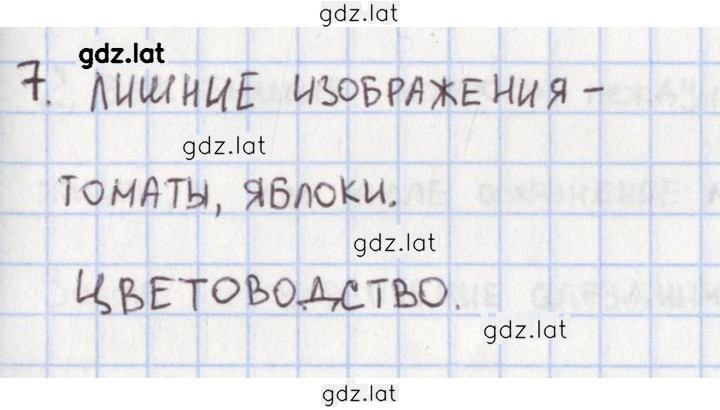 gdz.lat
gdz.lat
7. ЛИШНИЕ ИЗОБРАЖЕНИЯ –
gdz.lat
ТОМАТЫ, ЯБЛОКИ.
gdz.lat
ЦВЕТОВОДСТВО.
gdz.lat
gdz.lat